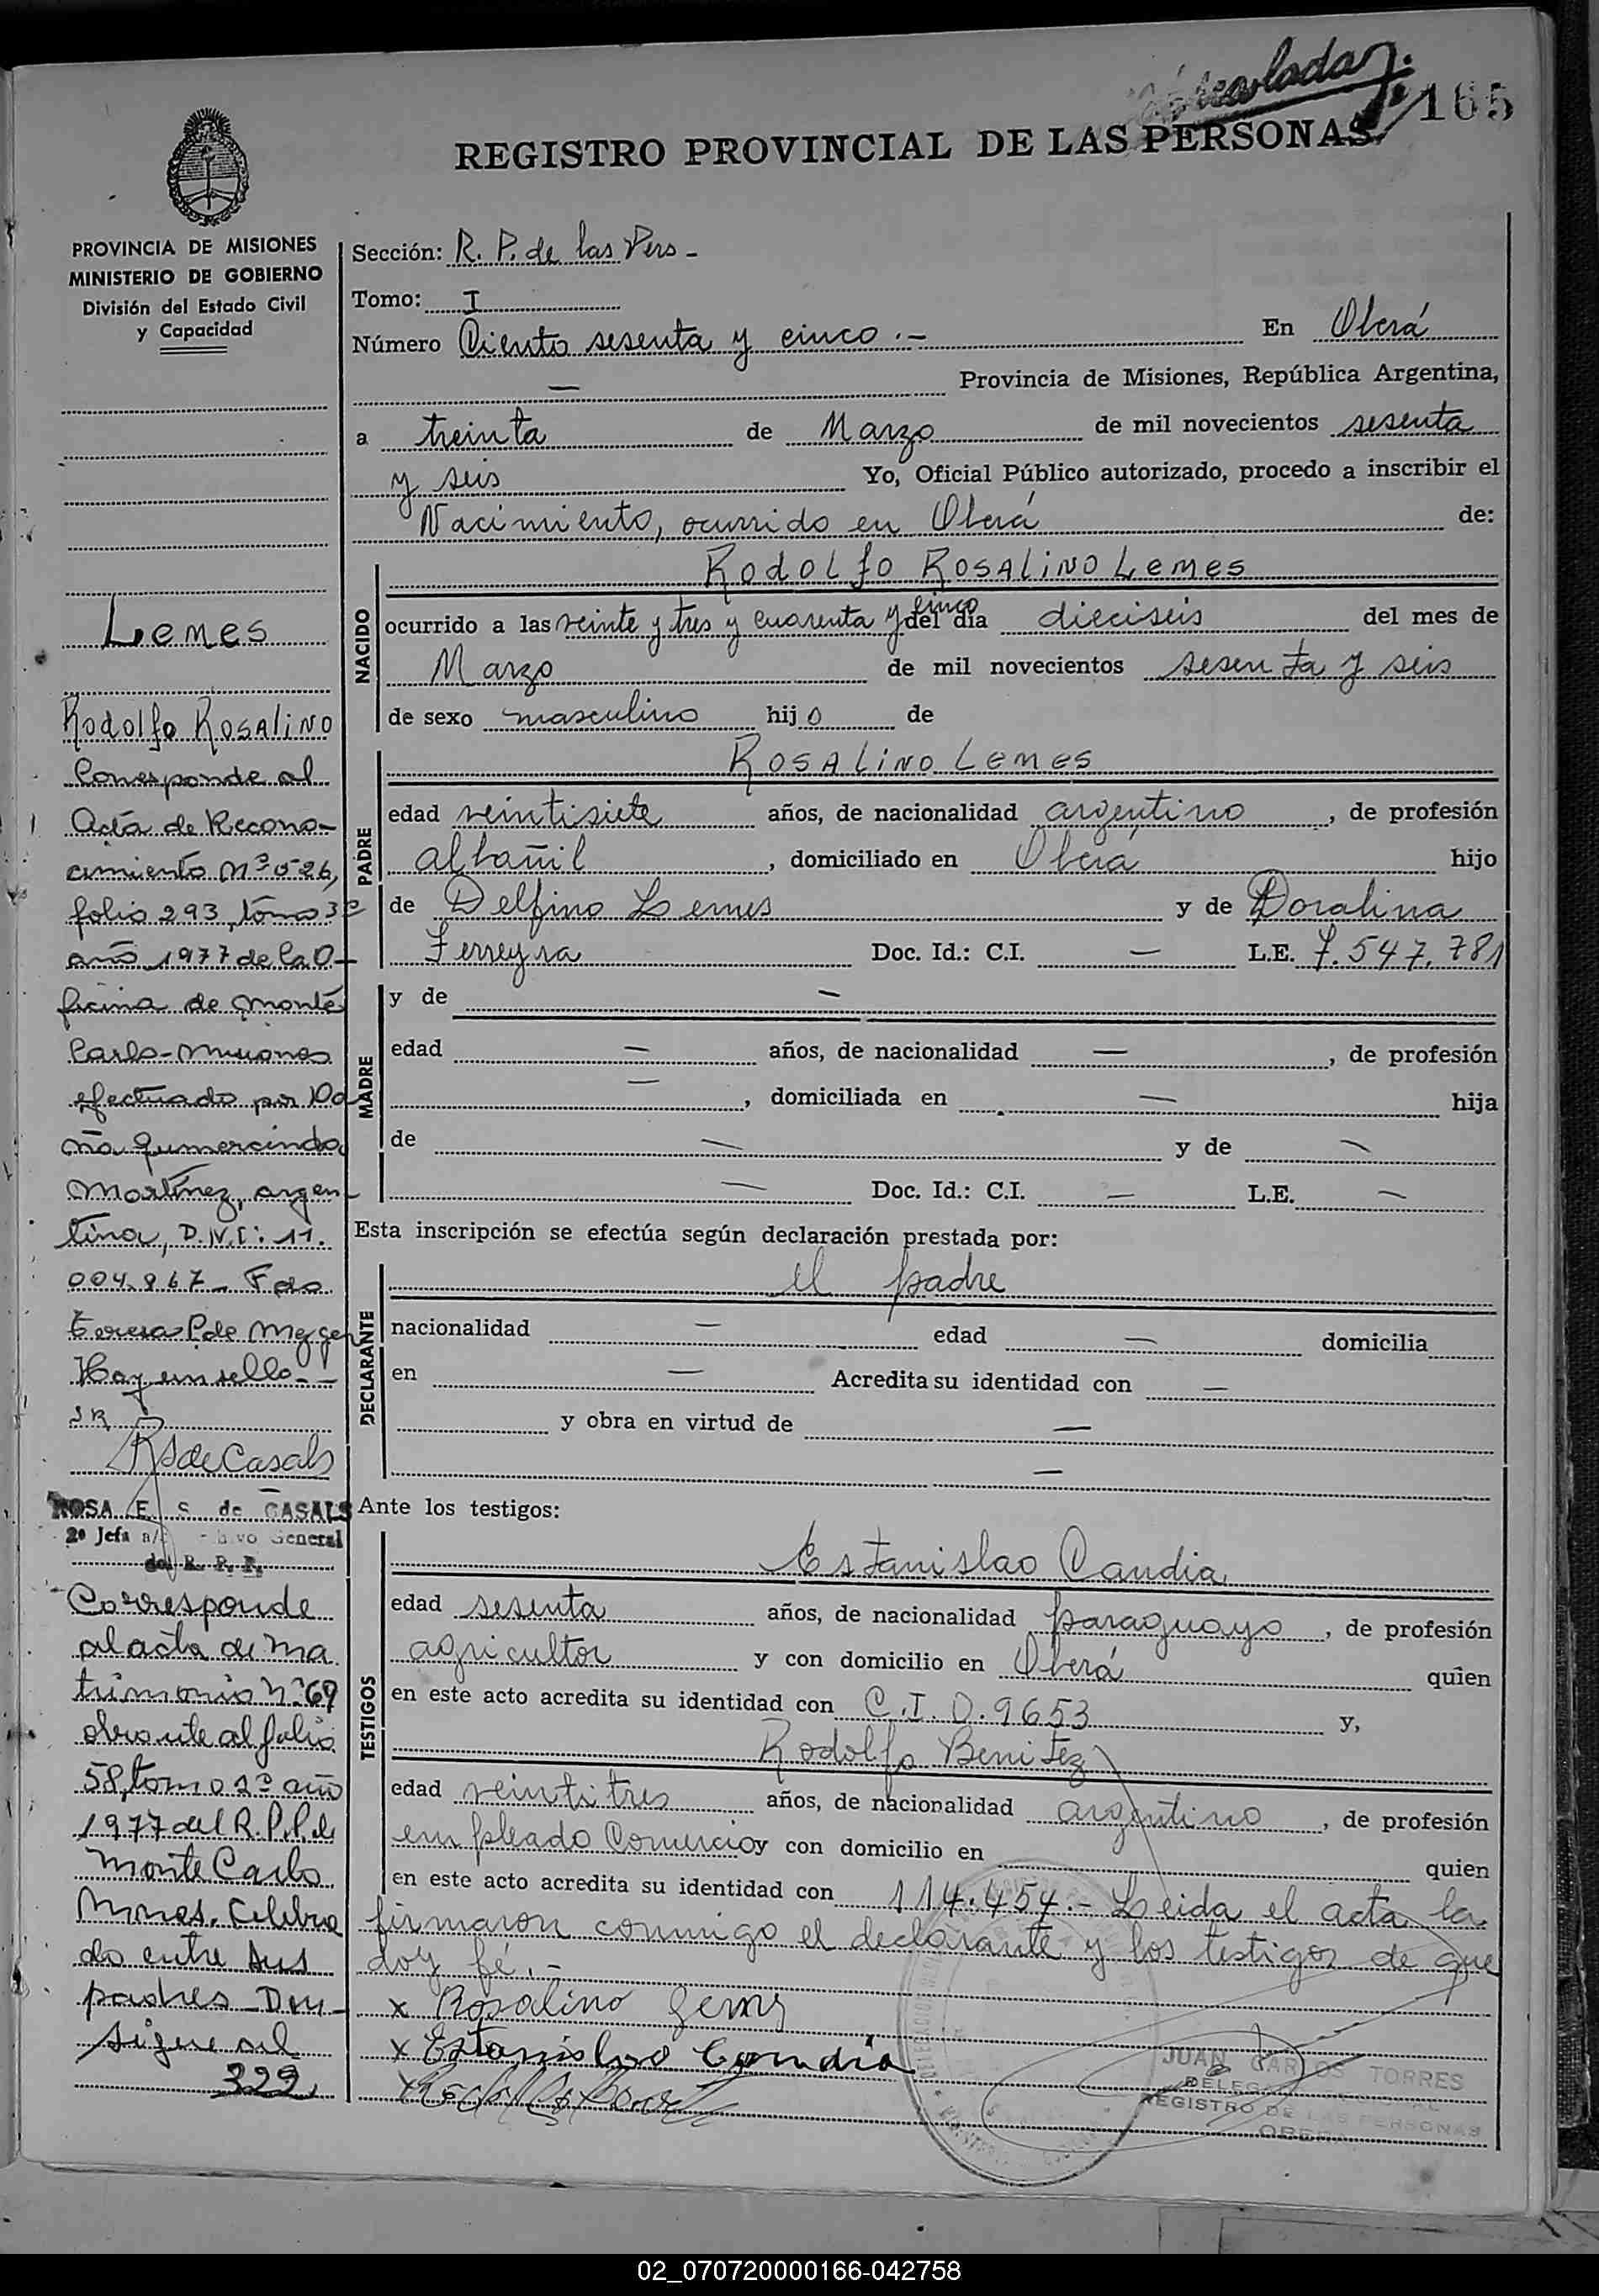 165
REGISTRO PROVINCIAL DE LAS PERSONAS
PROVINCIA DE MISIONES
MINISTERIO DE GOBIERNO
División del Estado Civil
y Capacidad
Lemes
Rodolfo Rosalino
Corresponde al
Acta de Recono-
cimiento Nº 526,
folio 293, tomo 3º
año 1977 de la O-
ficina de Monte
Carlo-Misiones
efectuado por Do
ña Gumercinda
Martínez, argen-
tina, D.N.I: 11.
004.967_ Fdo
Teresa P. de
Hay un sello--
SR
RSdeCasals
ROSA E. S. de CASALS
2º Jefa General
del R. P. P.
Corresponde
al acta de ma
trimonio Nº 69
obrante al folio
58, tomo 1º año
1977 del R.P.P. de
Monte Carlo
Mnes. Celebra
do entre sus
padres
sigue al
329
Sección: R. P. de las Pers -
Tomo: I
Número Ciento sesenta y cinco .- En Oberá
— Provincia de Misiones, República Argentina,
a treinta de Marzo de mil novecientos sesenta
y seis Yo, Oficial Público autorizado, procedo a inscribir el
Nacimiento, ocurrido en Oberá de:
NACIDO
Rodolfo Rosalino Lemes
ocurrido a las veinte y tres y cuarenta y cinco del día dieciseis del mes de
Marzo de mil novecientos sesenta y seis
de sexo masculino hijo de
PADRE
Rosalino Lemes
edad veintisiete años, de nacionalidad argentino, de profesión
albañil, domiciliado en Oberá hijo
de Delfino Lemes y de Doralina
Ferreyra Doc. Id.: C.I. — L.E. 7.547.781
MADRE
y de —
edad — años, de nacionalidad —, de profesión
—, domiciliada en — hija
de — y de —
— Doc. Id.: C.I. — L.E. —
Esta inscripción se efectúa según declaración prestada por:
DECLARANTE
el padre
nacionalidad — edad — domicilia
en — Acredita su identidad con —
y obra en virtud de —
—
Ante los testigos:
TESTIGOS
Estanislao Candia
edad sesenta años, de nacionalidad paraguayo, de profesión
agricultor y con domicilio en Oberá quien
en este acto acredita su identidad con C.I.O. 9653 y,
Rodolfo Benitez
edad veintitres años, de nacionalidad argentino, de profesión
empleado Comercio y con domicilio en quien
en este acto acredita su identidad con 114.454.- Leida el acta la
firmaron conmigo el declarante y los testigos de que
doy fé.-
x Rosalino Lemes
x Estanislao Candia
JUAN CARLOS TORRES
REGISTRO DE LAS PERSONAS
OBERA
02_070720000166-042758